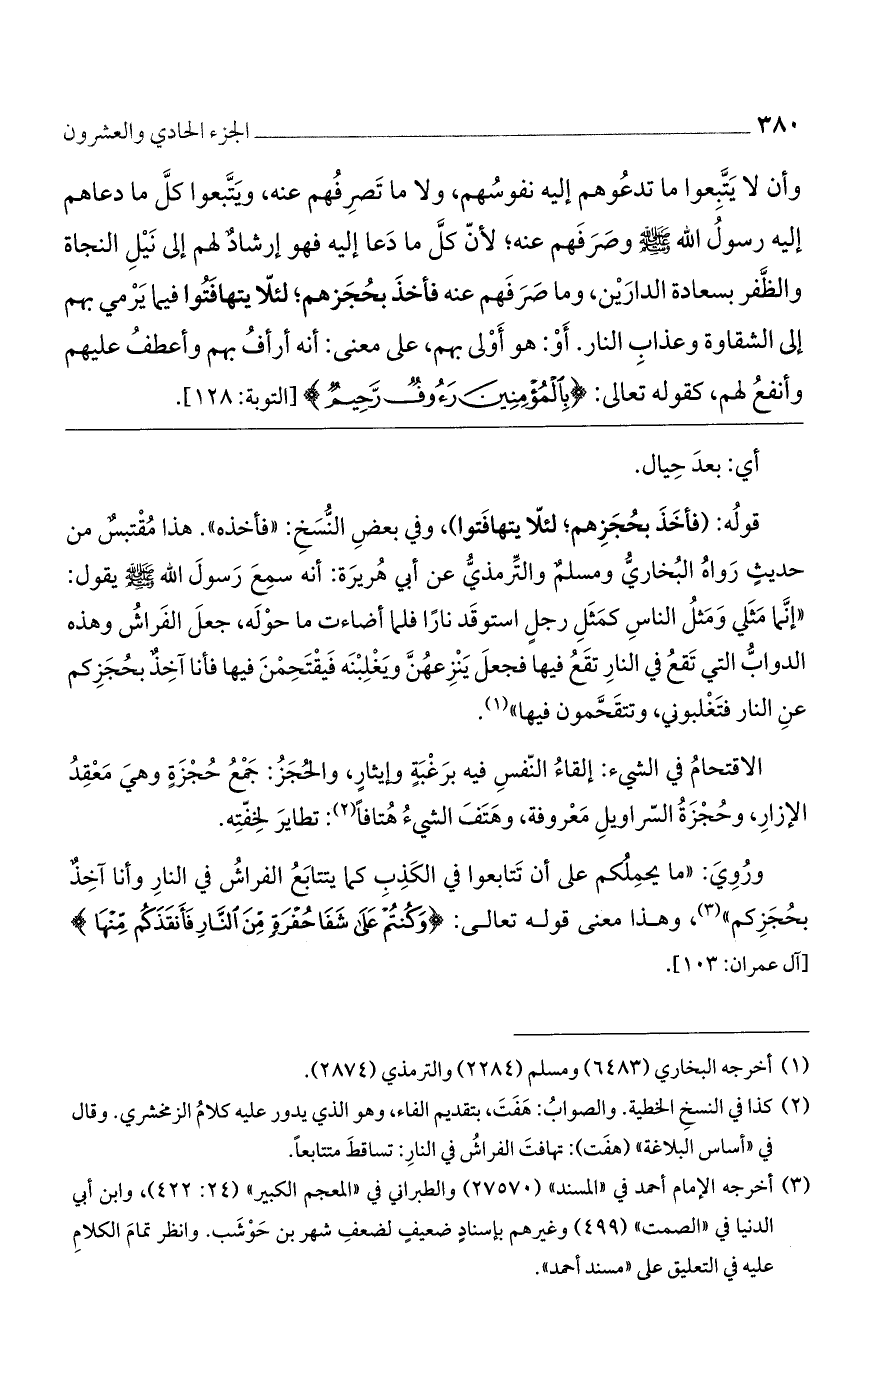 ٣٨٠ ــــــــــــــــــــــــــــــــ الجزء الحادي والعشرون
وأن لا يَتَّبِعوا ما تدعُوهم إليه نفوسُهم، ولا ما تَصرِفُهم عنه، ويَتَّبعوا كلَّ ما دعاهم
إليه رسولُ الله ﷺ وصَرَفَهم عنه؛ لأنّ كلَّ ما دَعا إليه فهو إرشادٌ لهم إلى نَيْلِ النجاة
والظَّفر بسعادة الدارَيْن، وما صَرَفَهم عنه فأخذَ بحُجَزهم؛ لئلّا يتهافَتُوا فيما يَرْمي بهم
إلى الشقاوة وعذابِ النار. أَوْ: هو أَوْلى بهم، على معنى: أنه أرأفُ بهم وأعطفُ عليهم
وأنفعُ لهم، كقوله تعالى: ﴿بِٱلْمُؤْمِنِينَ رَءُوفٌ رَّحِيمٌ﴾ [التوبة: ١٢٨].
أي: بعدَ حِيال.
قولُه: (فأخَذَ بحُجَزِهم؛ لئلّا يتهافَتوا)، وفي بعضِ النُّسَخِ: «فأخذه». هذا مُقْتبسٌ من
حديثٍ رَواهُ البُخاريُّ ومسلمٌ والتِّرمذيُّ عن أبي هُريرَة: أنه سمِعَ رَسولَ الله ﷺ يقول:
«إنَّما مَثَلي وَمَثلُ الناسِ كمَثَلِ رجلٍ استوقَد نارًا فلما أضاءت ما حوْلَه، جعلَ الفَراشُ وهذه
الدوابُّ التي تَقعُ في النارِ تقَعُ فيها فجعلَ يَنْزِعهُنَّ ويَغْلِبْنَه فَيقْتَحِمْنَ فيها فأنا آخِذٌ بحُجَزِكم
عنِ النار فتَغْلبوني، وتتقَحَّمون فيها»(١).
الاقتحامُ في الشيء: إلقاءُ النّفسِ فيه برَغْبَةٍ وإيثارٍ، والحُجَزُ: جَمْعُ حُجْزَةٍ وهيَ مَعْقِدُ
الإزارِ، وحُجْزَةُ السّراويلِ مَعْروفة، وهَتَفَ الشيءُ هُتافاً(٢): تطايرَ لِخفّتِه.
ورُوِيَ: «ما يحمِلُكم على أن تَتابعوا في الكَذِبِ كما يتتابَعُ الفراشُ في النارِ وأنا آخِذٌ
بحُجَزِكم»(٣)، وهـذا معنى قولـه تعالـى: ﴿وَكُنتُمْ عَلَىٰ شَفَا حُفْرَةٍ مِّنَ ٱلنَّارِ فَأَنقَذَكُم مِّنْهَا﴾
[آل عمران: ١٠٣].
(١) أخرجه البخاري (٦٤٨٣) ومسلم (٢٢٨٤) والترمذي (٢٨٧٤).
(٢) كذا في النسخِ الخطية. والصوابُ: هَفَتَ، بتقديم الفاء، وهو الذي يدور عليه كلامُ الزمخشري. وقال
في «أساس البلاغة» (هفَت): تهافتَ الفراشُ في النارِ: تساقطَ متتابعاً.
(٣) أخرجه الإمام أحمد في «المسند» (٢٧٥٧٠) والطبراني في «المعجم الكبير» (٢٤: ٤٢٢)، وابن أبي
الدنيا في «الصمت» (٤٩٩) وغيرهم بإسنادٍ ضعيفٍ لضعفِ شهر بن حَوْشَب. وانظر تمامَ الكلامِ
عليه في التعليق على «مسند أحمد».